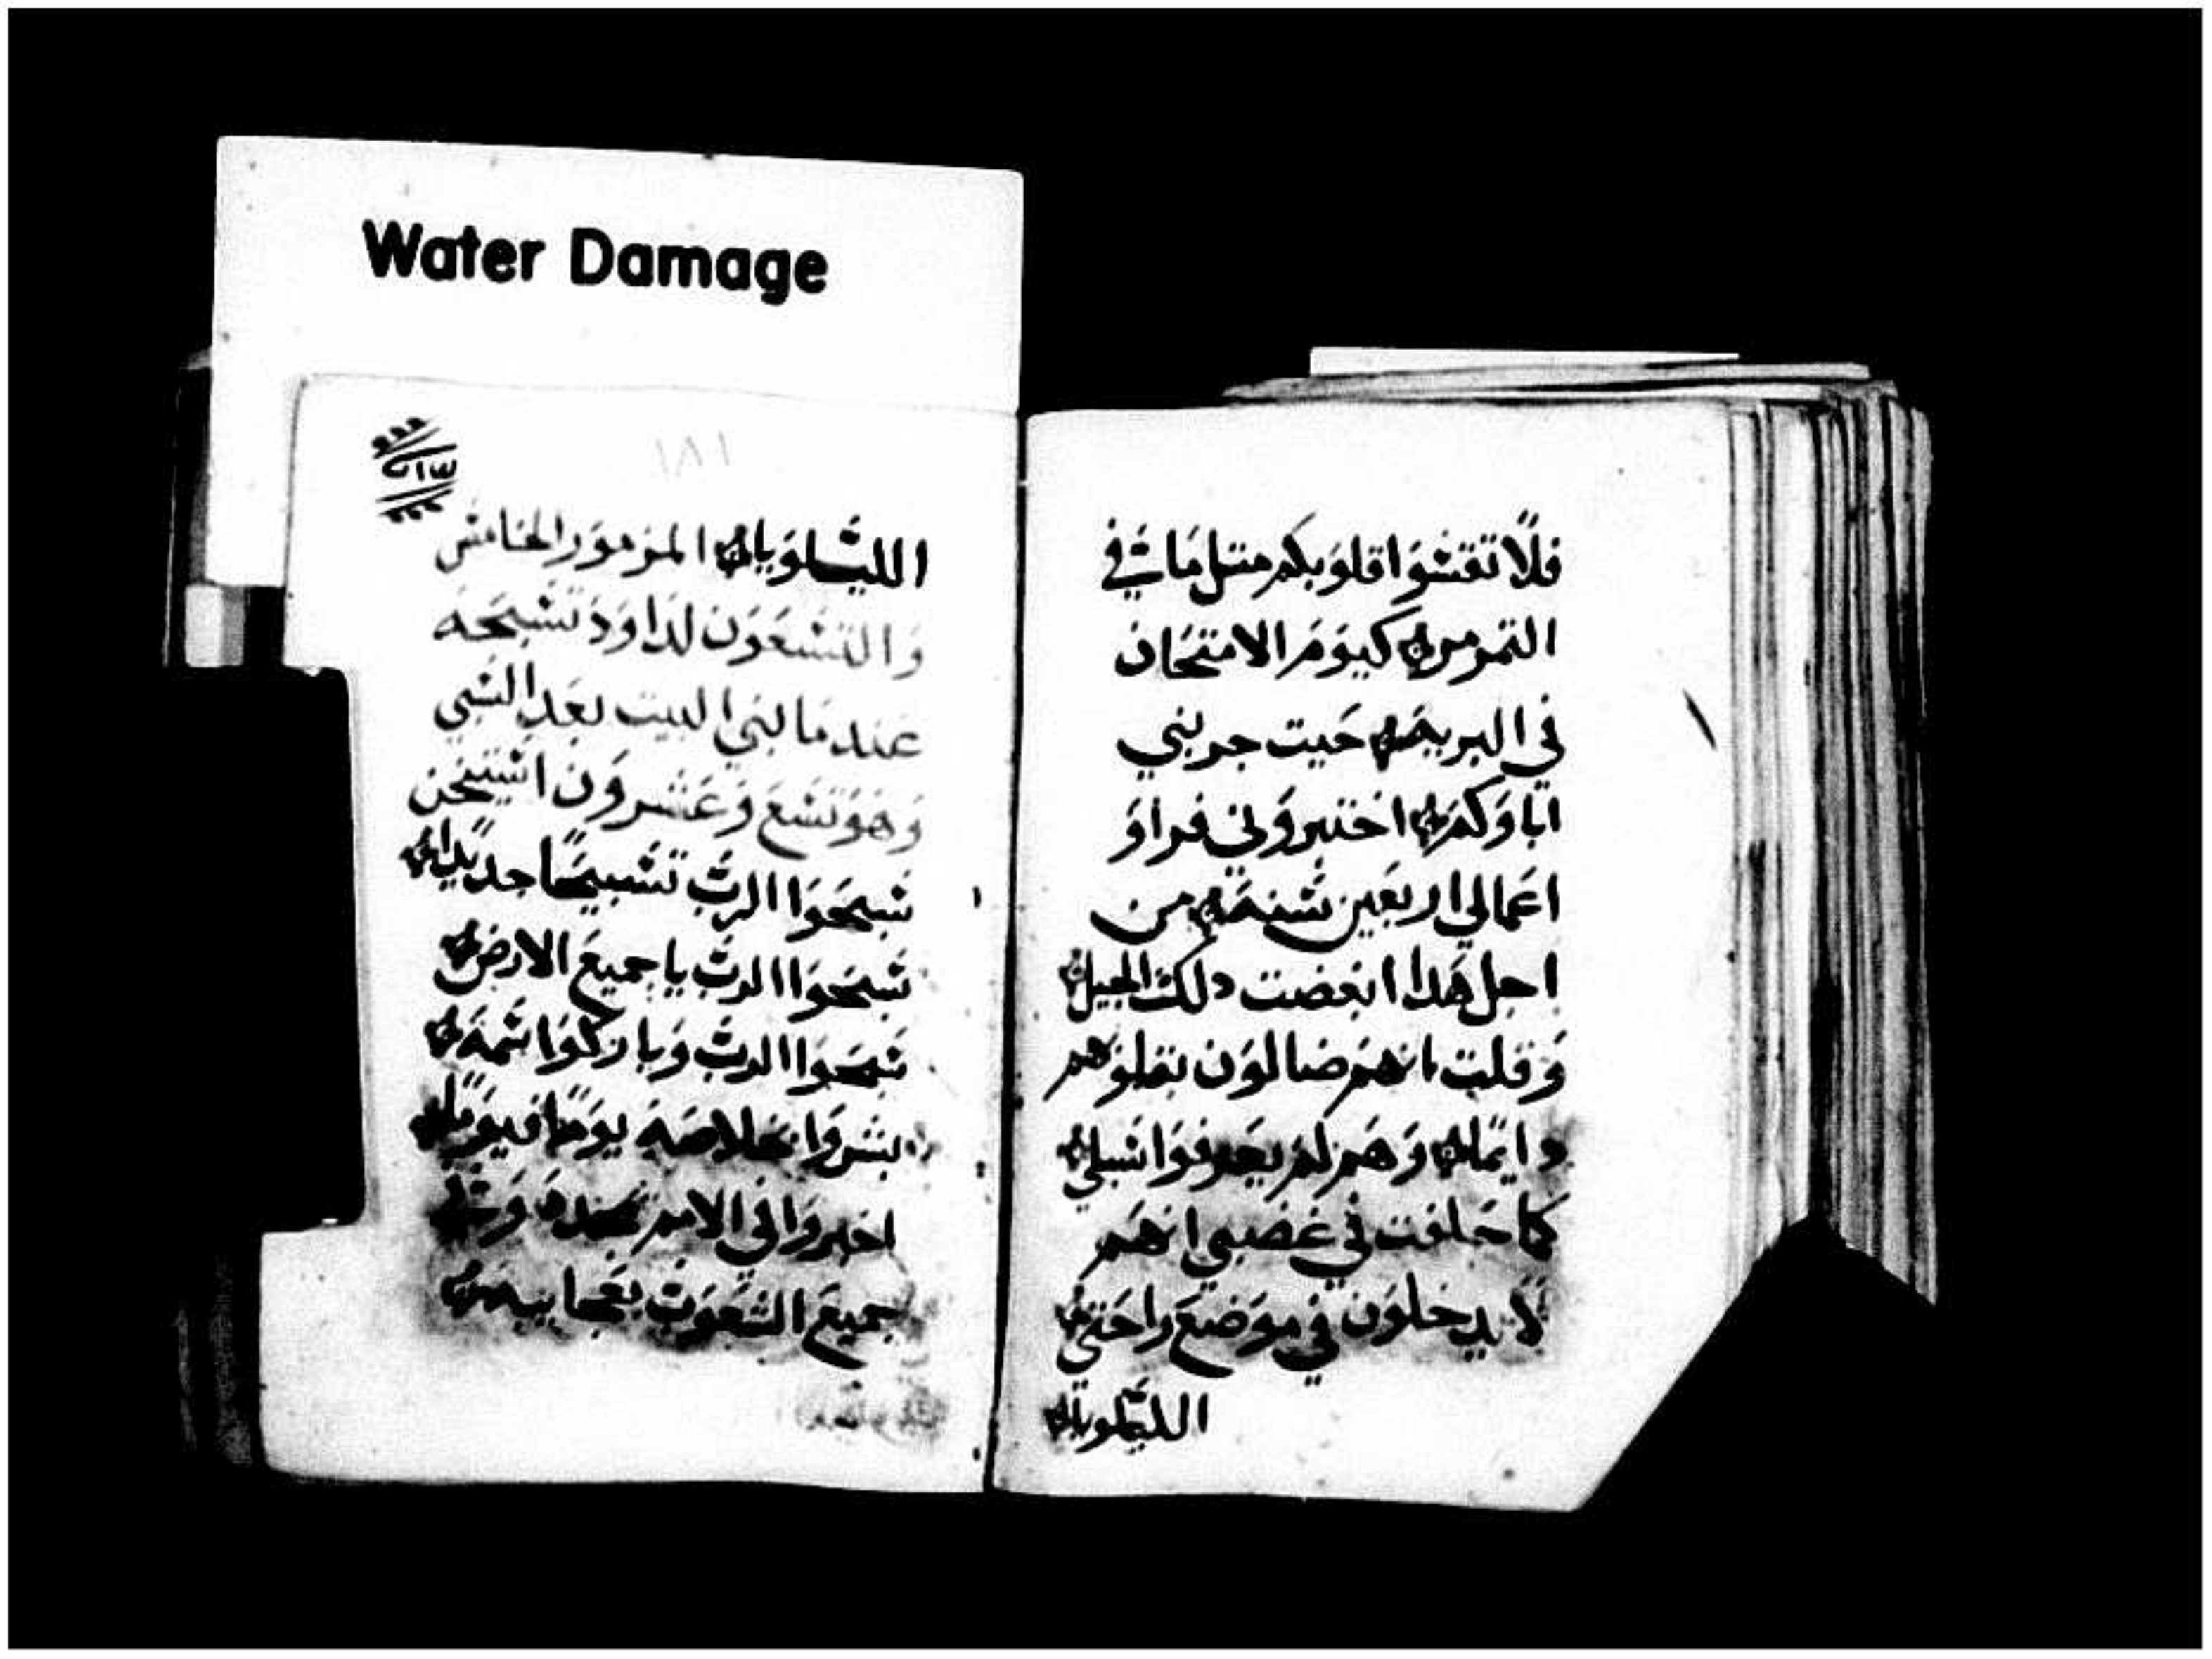 Water Damage
فلَا تقسَوَا قلوَبكم متل مَا في
التمرمر كيوَمَ الامتحَان
في البريه حَيت جربني
اباوَكمَ اختبروَني فراوَ
اعَمالي اربعَين سَنه من
اجل هَدا ابغضت دلك الجيل
وَقلت انهمَ ضالوَن بقلوَبهم
دايمًا وَهمَ لمَ يعَرفوَا سبلي
كما حَلفت في غضبي انهمَ
لَا يدخلوَن في موَضعَ راحَتي
الليلويا
١٨١
الليلوَيا المزموَر الخامس
وَالتسعَوَن لداوَدَ تسبحَه
عَندمَا بني البيت بعَد السبي
وَهوَ تسعَ وَعَشروَن استيخن
سبحَوَا الربَ تسبيحًَا جديدًا
سَبحَوَا الربَ يا جميعَ الارض
سَبحَوَا الربَ وَباركوَا اسَمهَ
بشروَا بخلاصهَ يوَمًا فيوَمًا
اخبروَا في الامم بمجدهَ وَفي
جميعَ الشعَوَب بعَجايبهَ